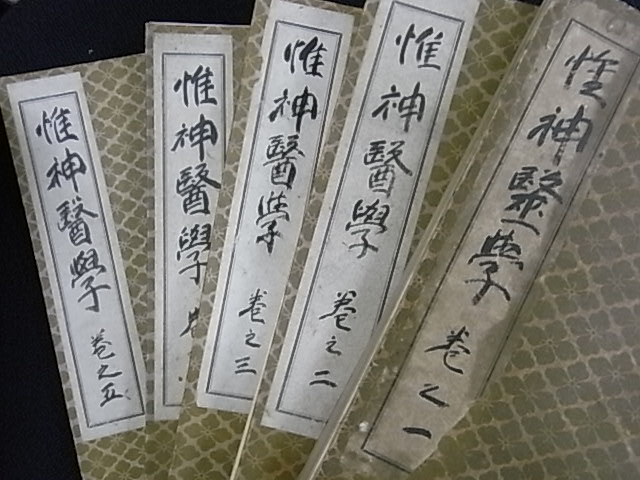 惟神毉學 卷之一
惟神醫學 卷之二
惟神醫學 卷之三
惟神醫學
惟神醫學 卷之五